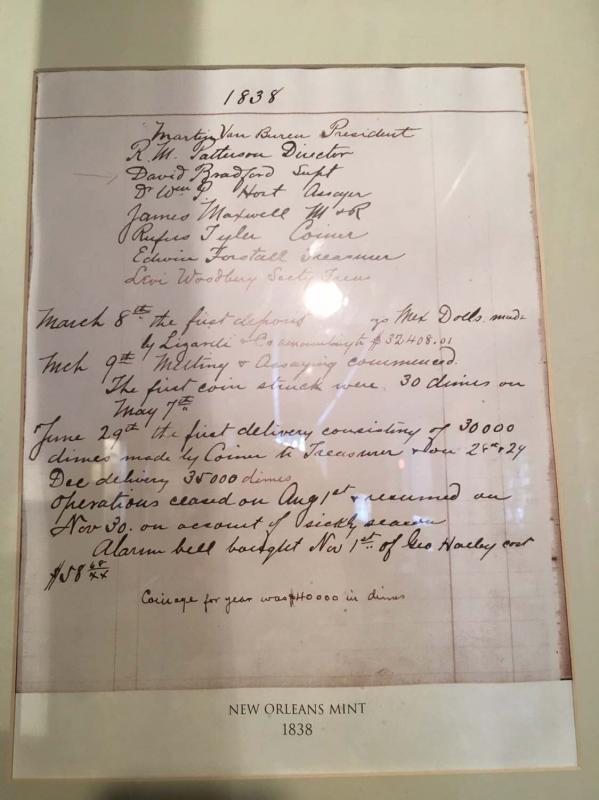 1838
Martin Van Buren President
R. M. Patterson Director
David Bradford Supt
Dr Wm P. Hort Assayer
James Maxwell M & R
Rufus Tyler Coiner
Edwin Forstall Treasurer
Levi Woodbury Secty Treas
March 8th the first deposit Mex Dolls. made
by Lizardi & Co amounting to $32,408.01
Mch 9th Melting & Assaying commenced.
The first coin struck were 30 dimes on
May 7th
June 29th the first delivery consisting of 30000
dimes made by Coiner to Treasurer & on
Dec delivery 35000 dimes
Operations ceased on Aug 1st & resumed on
Nov 30. on account of sickly season
Alarm bell bought Nov 1st of Geo Holley cost
$58
Coinage for year was $40000 in dimes
NEW ORLEANS MINT
1838